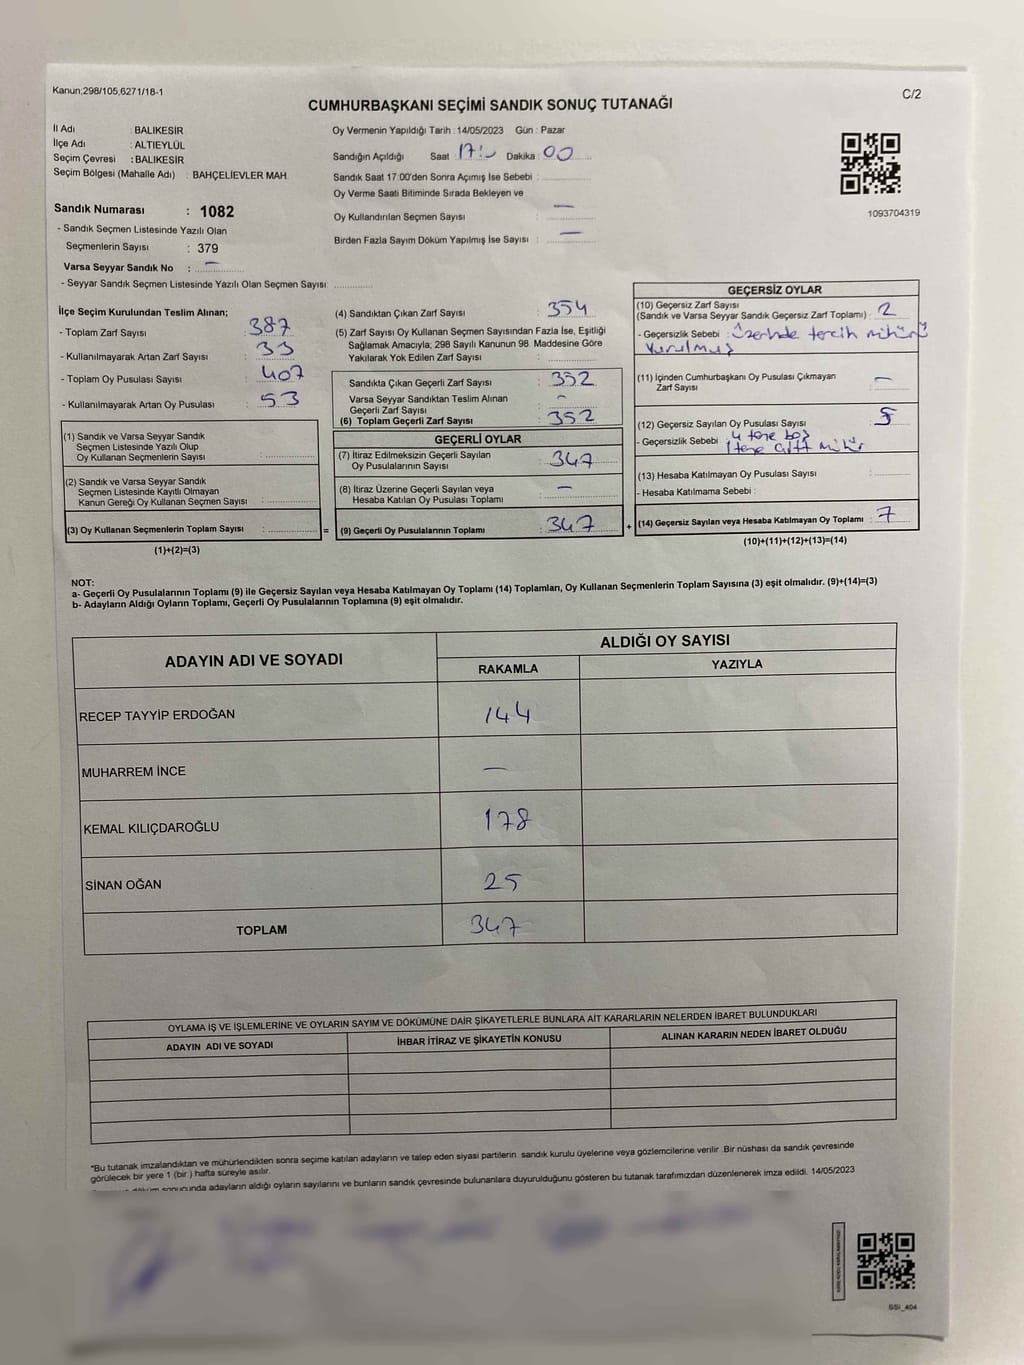 Kanun;298/105,6271/18-1
C/2
CUMHURBAŞKANI SEÇİMİ SANDIK SONUÇ TUTANAĞI
İl Adı : BALIKESİR
İlçe Adı : ALTIEYLÜL
Seçim Çevresi : BALIKESİR
Seçim Bölgesi (Mahalle Adı) : BAHÇELİEVLER MAH.
Sandık Numarası : 1082
- Sandık Seçmen Listesinde Yazılı Olan
Seçmenlerin Sayısı : 379
Varsa Seyyar Sandık No : —
- Seyyar Sandık Seçmen Listesinde Yazılı Olan Seçmen Sayısı:
Oy Vermenin Yapıldığı Tarih : 14/05/2023 Gün : Pazar
Sandığın Açıldığı Saat : 17:- Dakika : 00
Sandık Saat 17.00'den Sonra Açımış İse Sebebi :
Oy Verme Saati Bitiminde Sırada Bekleyen ve
Oy Kullandırılan Seçmen Sayısı : —
Birden Fazla Sayım Döküm Yapılmış İse Sayısı : —
1093704319
İlçe Seçim Kurulundan Teslim Alınan;
- Toplam Zarf Sayısı : 387
- Kullanılmayarak Artan Zarf Sayısı : 33
- Toplam Oy Pusulası Sayısı : 407
- Kullanılmayarak Artan Oy Pusulası : 53
(1) Sandık ve Varsa Seyyar Sandık
Seçmen Listesinde Yazılı Olup
Oy Kullanan Seçmenlerin Sayısı :
(2) Sandık ve Varsa Seyyar Sandık
Seçmen Listesinde Kayıtlı Olmayan
Kanun Gereği Oy Kullanan Seçmen Sayısı :
(3) Oy Kullanan Seçmenlerin Toplam Sayısı : =
(1)+(2)=(3)
(4) Sandıktan Çıkan Zarf Sayısı : 354
(5) Zarf Sayısı Oy Kullanan Seçmen Sayısından Fazla İse, Eşitliği
Sağlamak Amacıyla; 298 Sayılı Kanunun 98 Maddesine Göre
Yakılarak Yok Edilen Zarf Sayısı :
Sandıkta Çıkan Geçerli Zarf Sayısı : 352
Varsa Seyyar Sandıktan Teslim Alınan
Geçerli Zarf Sayısı : -
(6) Toplam Geçerli Zarf Sayısı : 352
GEÇERLİ OYLAR
(7) İtiraz Edilmeksizin Geçerli Sayılan
Oy Pusulalarının Sayısı : 347
(8) İtiraz Üzerine Geçerli Sayılan veya
Hesaba Katılan Oy Pusulası Toplamı : —
(9) Geçerli Oy Pusulalarının Toplamı : 347 +
GEÇERSİZ OYLAR
(10) Geçersiz Zarf Sayısı
(Sandık ve Varsa Seyyar Sandık Geçersiz Zarf Toplamı) : 2
- Geçersizlik Sebebi : üzerinde tercih mührü
vurulmuş
(11) İçinden Cumhurbaşkanı Oy Pusulası Çıkmayan
Zarf Sayısı : —
(12) Geçersiz Sayılan Oy Pusulası Sayısı : 5
- Geçersizlik Sebebi : 4 tane boş
1 tane çift mühür
(13) Hesaba Katılmayan Oy Pusulası Sayısı :
- Hesaba Katılmama Sebebi :
(14) Geçersiz Sayılan veya Hesaba Katılmayan Oy Toplamı : 7
(10)+(11)+(12)+(13)=(14)
NOT:
a- Geçerli Oy Pusulalarının Toplamı (9) ile Geçersiz Sayılan veya Hesaba Katılmayan Oy Toplamı (14) Toplamları, Oy Kullanan Seçmenlerin Toplam Sayısına (3) eşit olmalıdır. (9)+(14)=(3)
b- Adayların Aldığı Oyların Toplamı, Geçerli Oy Pusulalarının Toplamına (9) eşit olmalıdır.
ADAYIN ADI VE SOYADI
ALDIĞI OY SAYISI
RAKAMLA YAZIYLA
RECEP TAYYİP ERDOĞAN 144
MUHARREM İNCE —
KEMAL KILIÇDAROĞLU 178
SİNAN OĞAN 25
TOPLAM 347
OYLAMA İŞ VE İŞLEMLERİNE VE OYLARIN SAYIM VE DÖKÜMÜNE DAİR ŞİKAYETLERLE BUNLARA AİT KARARLARIN NELERDEN İBARET BULUNDUKLARI
ADAYIN ADI VE SOYADI İHBAR İTİRAZ VE ŞİKAYETİN KONUSU ALINAN KARARIN NEDEN İBARET OLDUĞU
"Bu tutanak imzalandıktan ve mühürlendikten sonra seçime katılan adayların ve talep eden siyasi partilerin sandık kurulu üyelerine veya gözlemcilerine verilir .Bir nüshası da sandık çevresinde
görülecek bir yere 1 (bir ) hafta süreyle asılır.
döküm sonucunda adayların aldığı oyların sayılarını ve bunların sandık çevresinde bulunanlara duyurulduğunu gösteren bu tutanak tarafımızdan düzenlenerek imza edildi. 14/05/2023
SSI_404